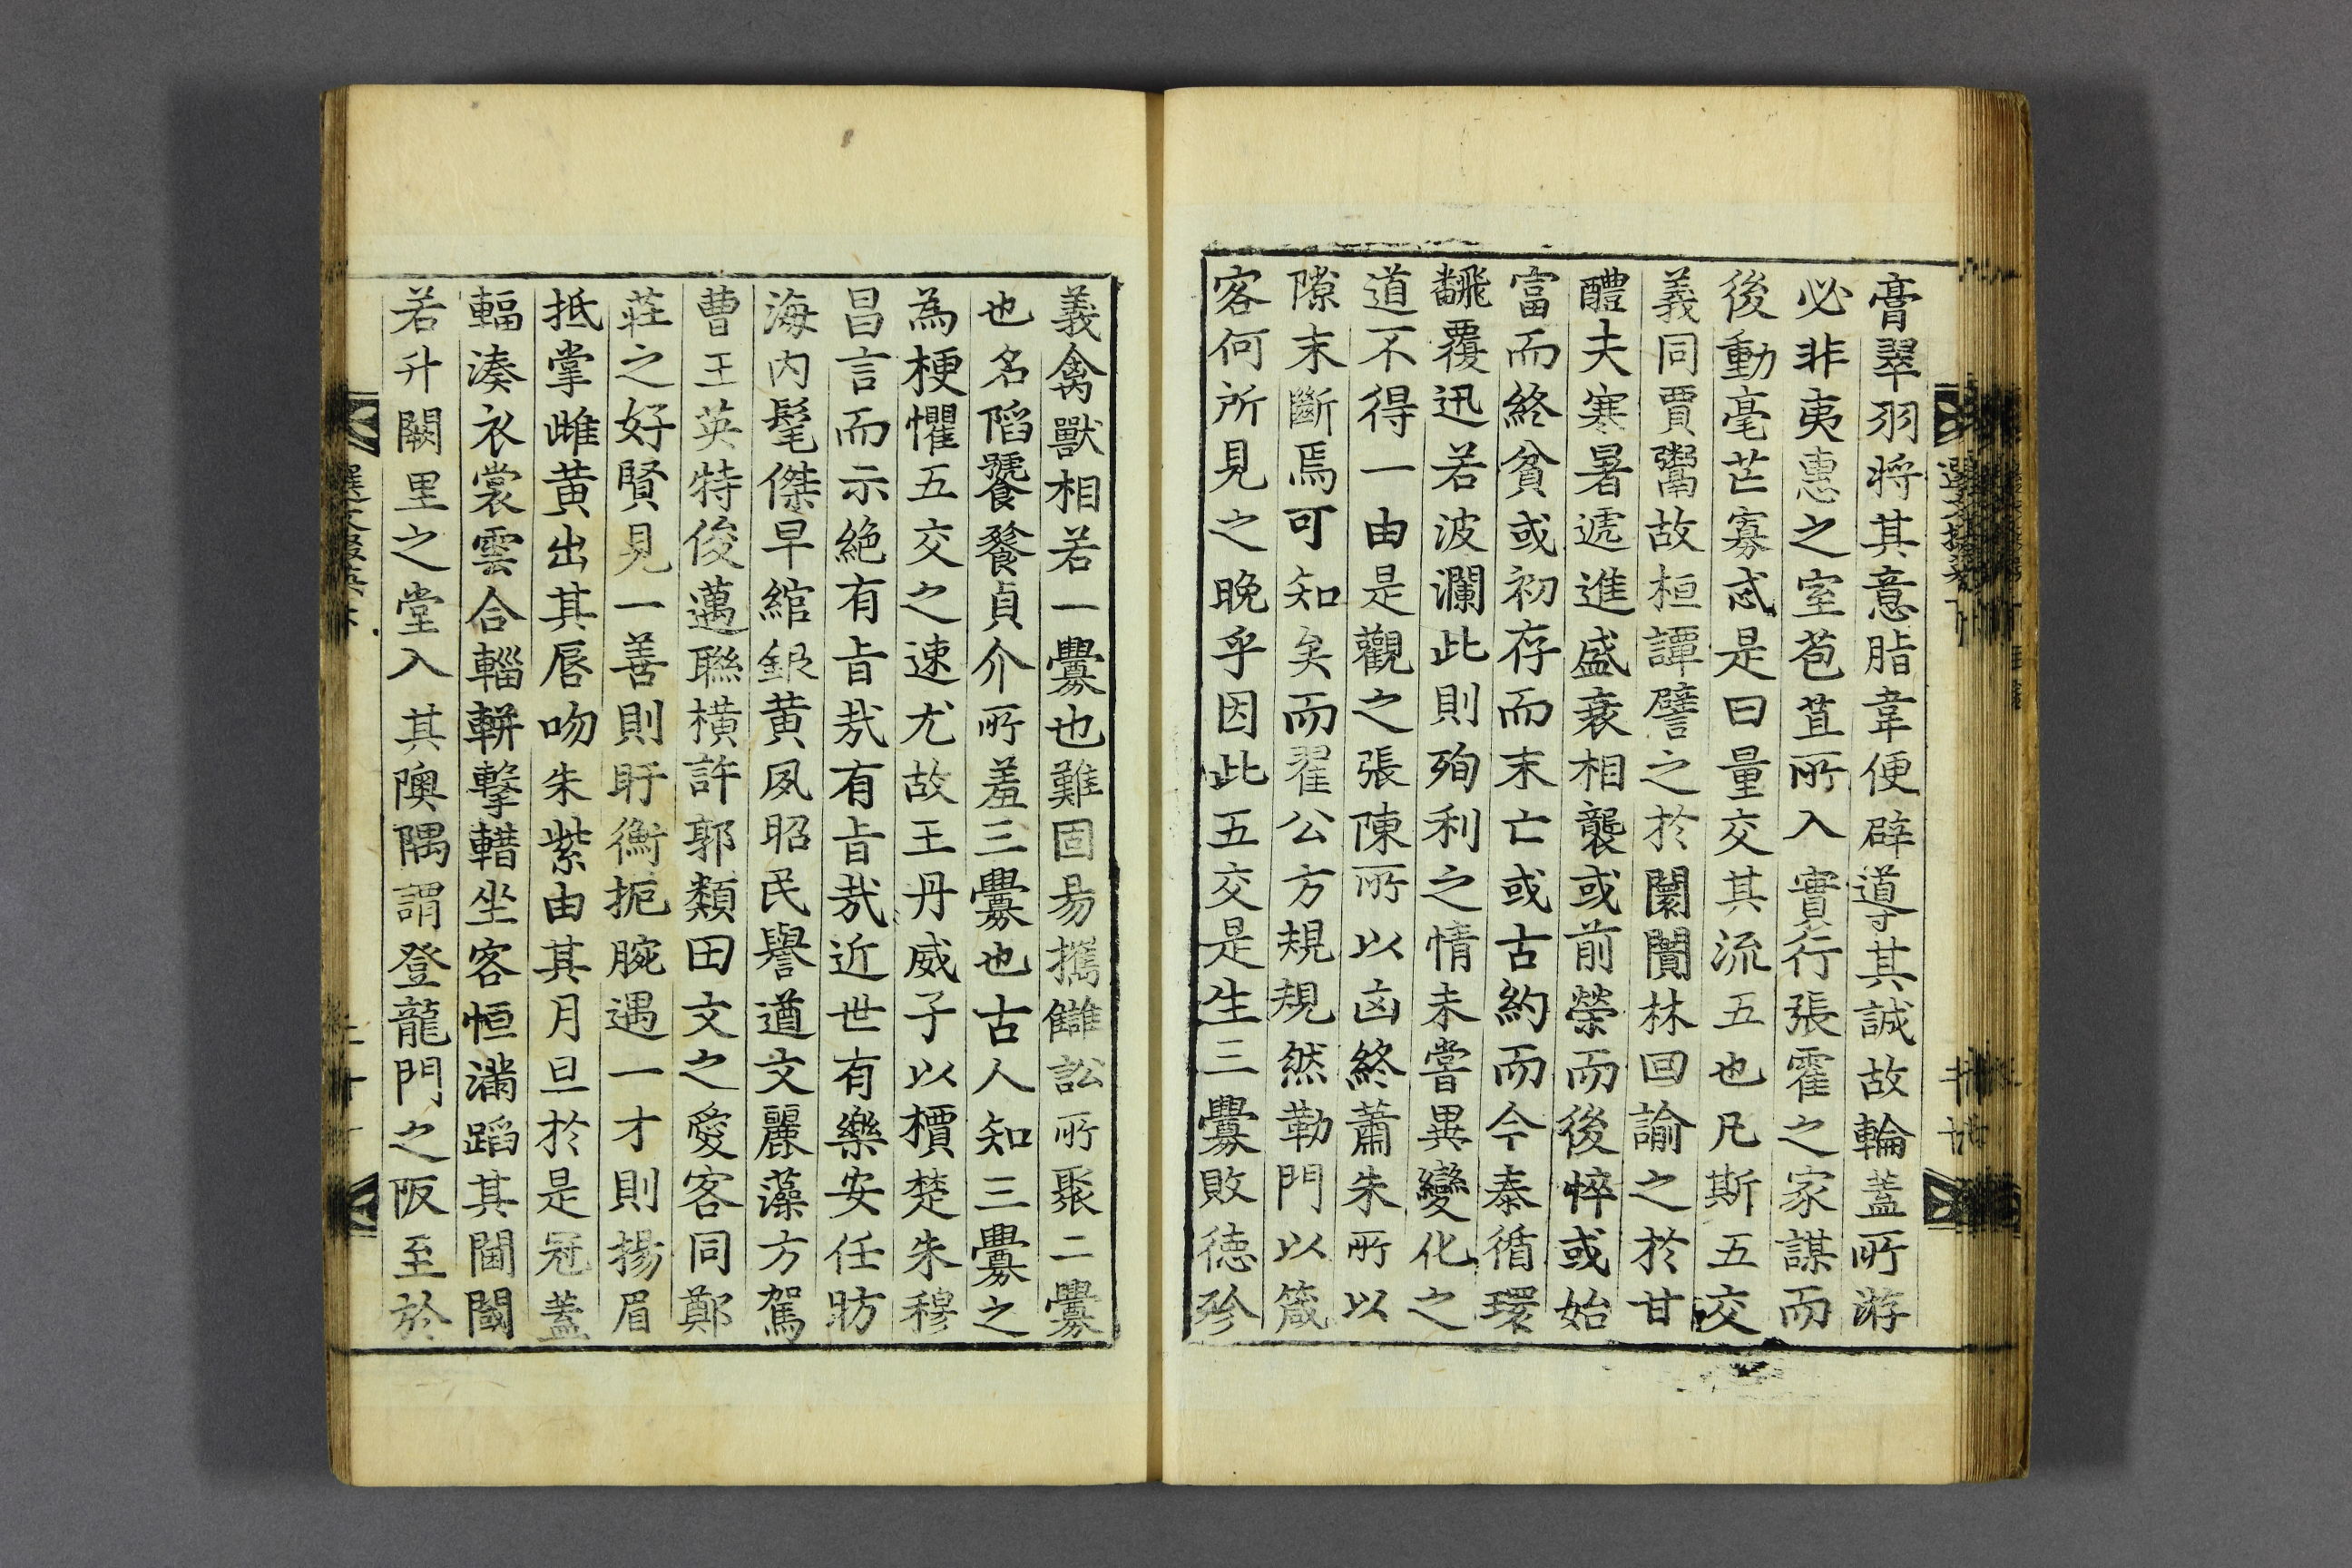 膏翠羽將其意脂韋便辟導其誠故輪蓋所游
必非夷惠之室苞苴所入實行張霍之家謀而
後動毫芒寡忒是曰量交其流五也凡斯五交
義同賈鬻故桓譚譬之於闤闠林回諭之於甘
醴夫寒暑遞進盛衰相襲或前榮而後悴或始
富而終貧或初存而末亡或古約而今泰循環
飜覆迅若波瀾此則殉利之情未嘗異變化之
道不得一由是觀之張陳所以凶終蕭朱所以
隙末斷焉可知矣而翟公方規規然勒門以箴
客何所見之晚乎因此五交是生三釁敗德殄
義禽獸相若一釁也難固易攜讎訟所聚二釁
也名陷饕餮貞介所羞三釁也古人知三釁之
為梗懼五交之速尤故王丹威子以檟楚朱穆
昌言而示絶有旨㦲有旨㦲近世有樂安任昉
海内髦傑早綰銀黄夙昭民譽遒文麗藻方駕
曹王英特俊邁聯橫許郭類田文之愛客同鄭
莊之好賢見一善則盱衡扼腕遇一才則揚眉
抵掌雌黄出其唇吻朱紫由其月旦於是冠蓋
輻湊衣裳雲合輜軿擊轊坐客恒滿蹈其閫閾
若升闕里之堂入其隩隅謂登龍門之阪至於